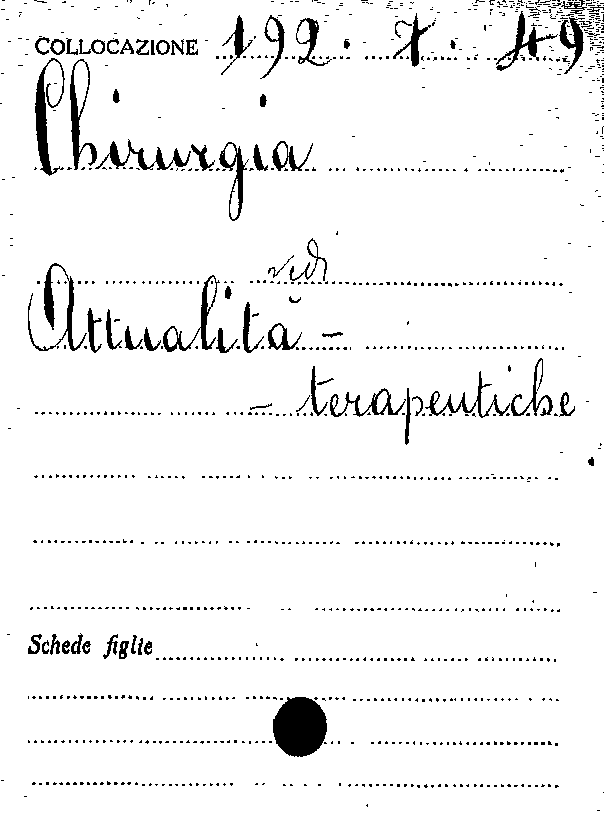 COLLOCAZIONE 192. 7. 49
Chirurgia
vedi
Attualità -
- terapeutiche
Schede figlie